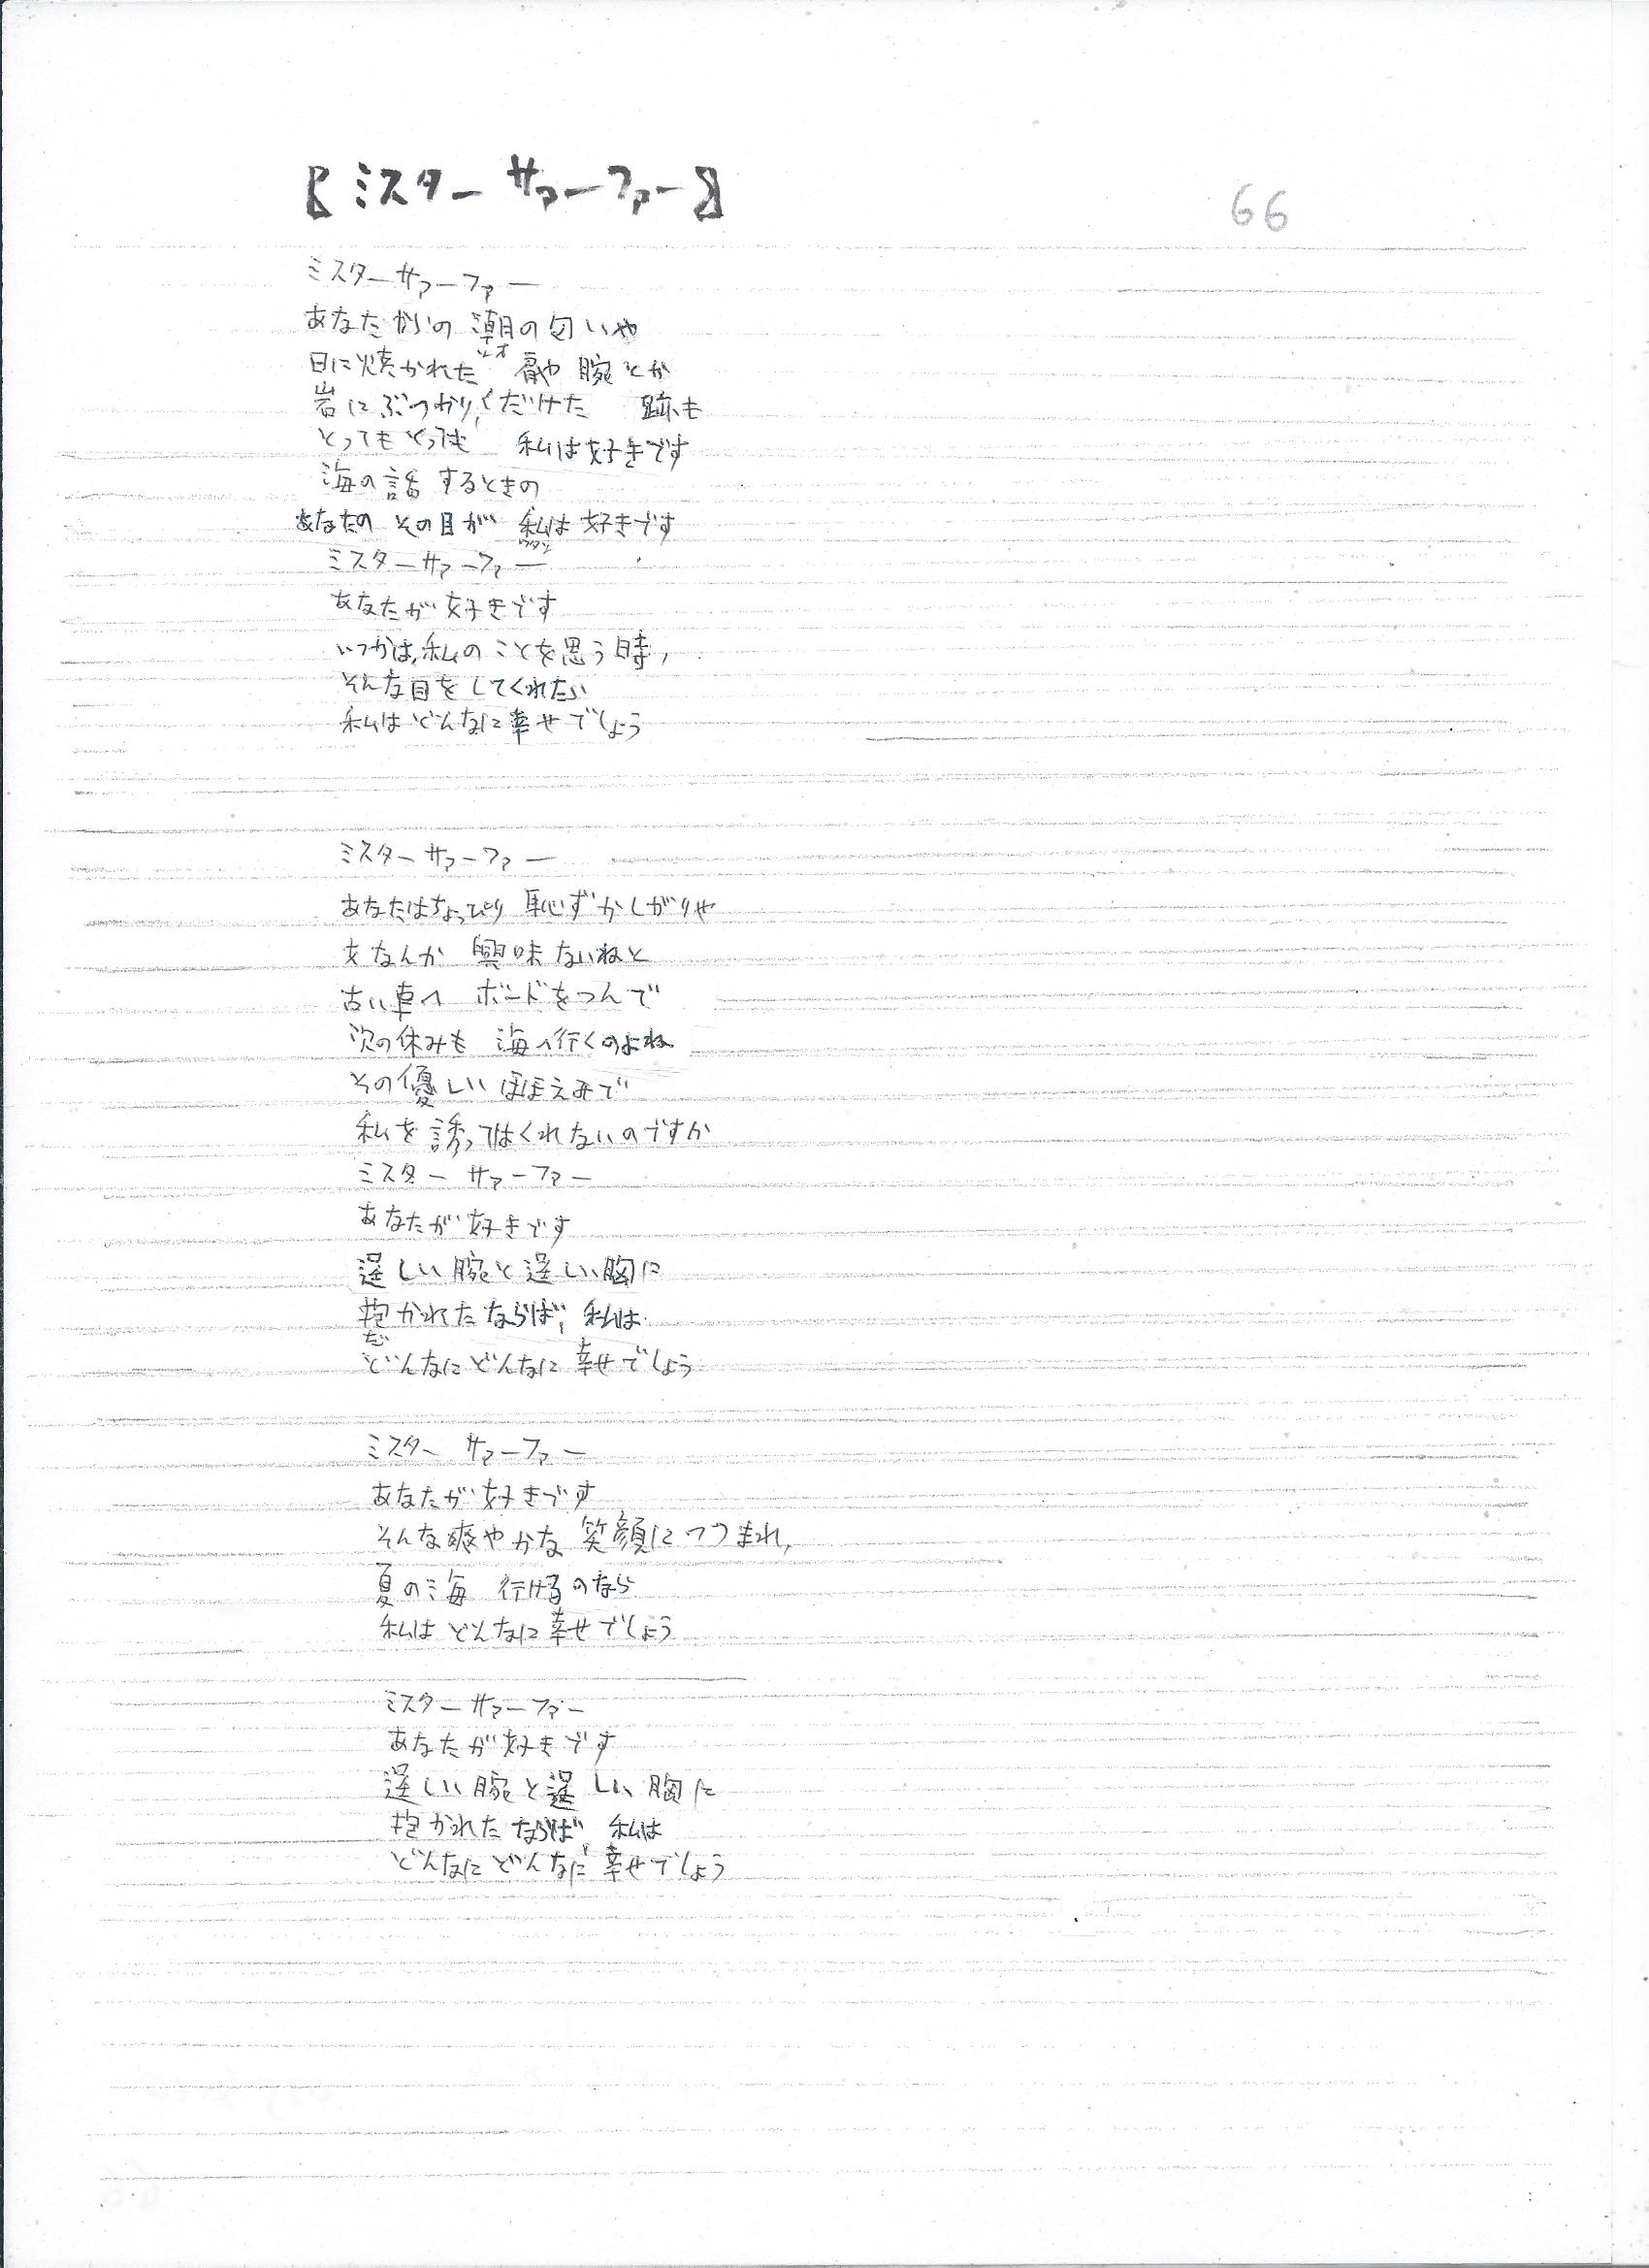 【ミスター サァーファー】
66
ミスターサァーファー
あなたからの潮の匂いや
シオ
日に焼かれた 肩や 腕とか
岩にぶつかり、くだけた 跡も
とってもとっても 私は好きです
海の話するときの
あなたの その目が 私は好きです
ワタシ
ミスターサァーファー
あなたが好きです
いつかは、私のことを思う時、
そんな目をしてくれたら
私はどんなに幸せでしょう
ミスターサァーファー
あなたはちょっぴり 恥ずかしがりや
女なんか 興味ないねと
古い車へ ボードをつんで
次の休みも 海へ行くのよね
その優しいほほえみで
私を誘ってはくれないのですか
ミスター サァーファー
あなたが好きです
逞しい腕と逞しい胸に
抱かれたならば、私は
だ
どんなにどんなに幸せでしょう
ミスター サァーファー
あなたが好きです
そんな爽やかな笑顔につつまれ、
夏の海 行けるのなら
私はどんなに幸せでしょう
ミスターサァーファー
あなたが好きです
逞しい腕と逞しい胸に
抱かれたならば、私は
どんなにどんなに幸せでしょう